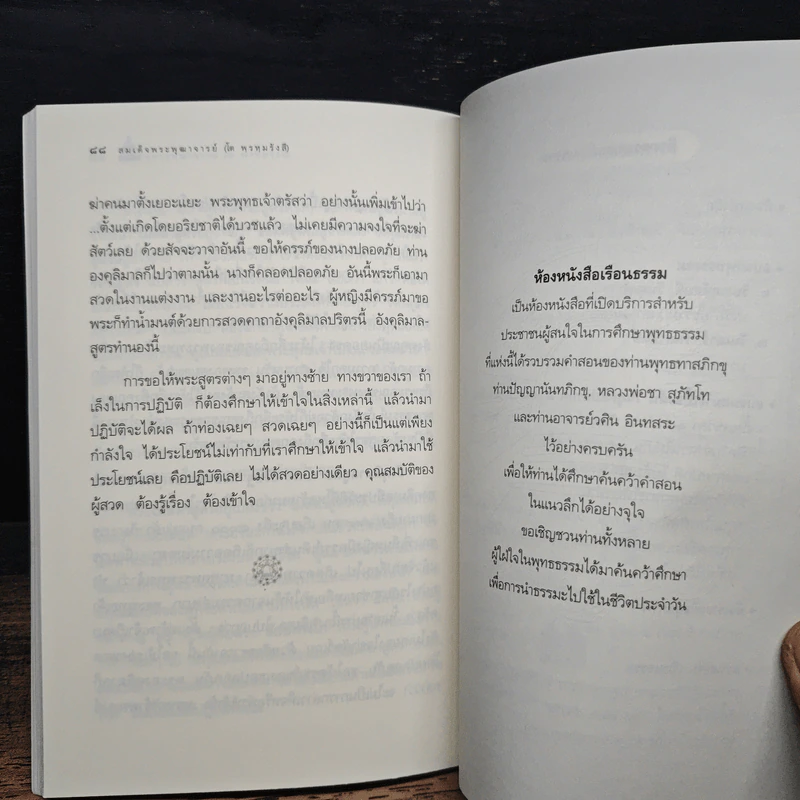 ๘๘ สมเด็จพระพุฒาจารย์ (โต พฺรหฺมรํสี)
ฆ่าคนมาตั้งเยอะแยะ พระพุทธเจ้าตรัสว่า อย่างนั้นเพิ่มเข้าไปว่า
...ตั้งแต่เกิดโดยอริยชาติได้บวชแล้ว ไม่เคยมีความจงใจที่จะฆ่า
สัตว์เลย ด้วยสัจจะวาจาอันนี้ ขอให้ครรภ์ของนางปลอดภัย ท่าน
องคุลิมาลก็ไปว่าตามนั้น นางก็คลอดปลอดภัย อันนี้พระก็เอามา
สวดในงานแต่งงาน และงานอะไรต่ออะไร ผู้หญิงมีครรภ์มาขอ
พระก็ทำน้ำมนต์ด้วยการสวดคาถาอังคุลิมาลปริตรนี้ อังคุลิมาล-
สูตรทำนองนี้
การขอให้พระสูตรต่างๆ มาอยู่ทางซ้าย ทางขวาของเรา ถ้า
เล็งในการปฏิบัติ ก็ต้องศึกษาให้เข้าใจในสิ่งเหล่านี้ แล้วนำมา
ปฏิบัติจะได้ผล ถ้าท่องเฉยๆ สวดเฉยๆ อย่างนี้ก็เป็นแต่เพียง
กำลังใจ ได้ประโยชน์ไม่เท่ากับที่เราศึกษาให้เข้าใจ แล้วนำมาใช้
ประโยชน์เลย คือปฏิบัติเลย ไม่ได้สวดอย่างเดียว คุณสมบัติของ
ผู้สวด ต้องรู้เรื่อง ต้องเข้าใจ
ห้องหนังสือเรือนธรรม
เป็นห้องหนังสือที่เปิดบริการสำหรับ
ประชาชนผู้สนใจในการศึกษาพุทธธรรม
ที่แห่งนี้ได้รวบรวมคำสอนของท่านพุทธทาสภิกขุ
ท่านปัญญานันทภิกขุ. หลวงพ่อชา สุภัทโท
และท่านอาจารย์วศิน อินทสระ
ไว้อย่างครบครัน
เพื่อให้ท่านได้ศึกษาค้นคว้าคำสอน
ในแนวลึกได้อย่างจุใจ
ขอเชิญชวนท่านทั้งหลาย
ผู้ใฝ่ใจในพุทธธรรมได้มาค้นคว้าศึกษา
เพื่อการนำธรรมะไปใช้ในชีวิตประจำวัน